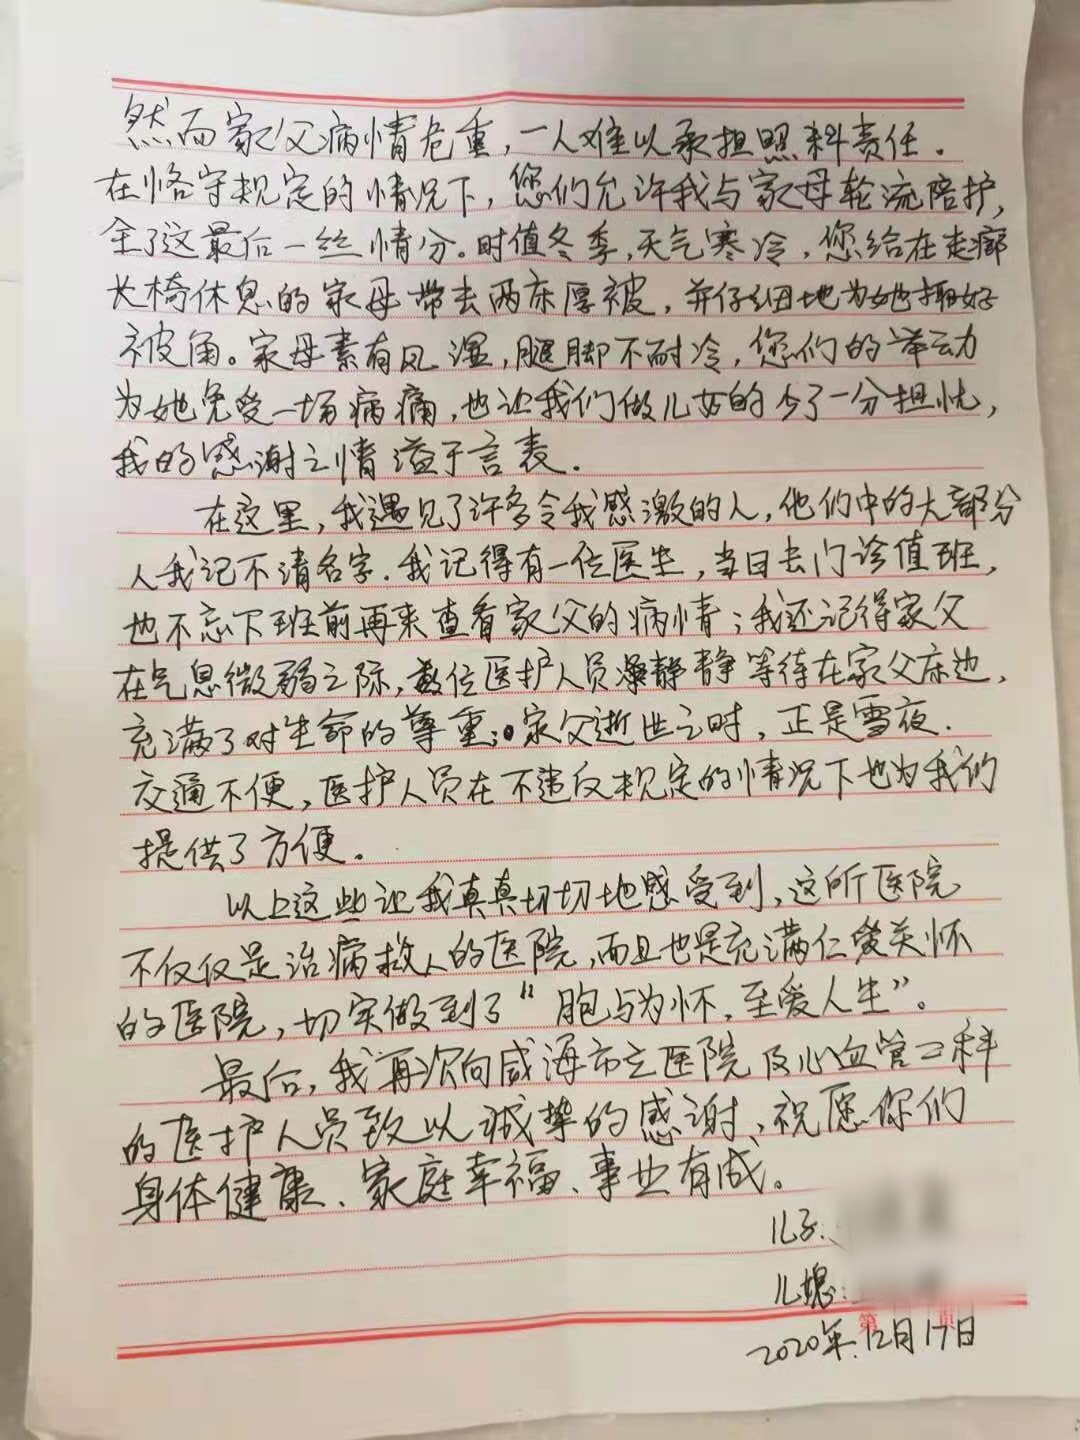 然而家父病情危重，一人难以承担照料责任．
在恪守规定的情况下，您们允许我与家母轮流陪护，
全了这最后一丝情分。时值冬季，天气寒冷，您给在走廊
长椅休息的家母带去两床厚被，并仔细地为她掖好
被角。家母素有风湿，腿脚不耐冷，您们的举动
为她免受一场病痛，也让我们做儿女的少了一分担忧，
我的感谢之情溢于言表．
在这里，我遇见了许多令我感激的人，他们中的大部分
人我记不清名字．我记得有一位医生，当日去门诊值班，
也不忘下班前再来查看家父的病情；我还记得家父
在气息微弱之际，数位医护人员静静等待在家父床边，
充满了对生命的尊重；家父逝世之时，正是雪夜．
交通不便，医护人员在不违反规定的情况下也为我们
提供了方便。
以上这些让我真真切切地感受到，这所医院
不仅仅是治病救人的医院，而且也是充满仁爱关怀
的医院，切实做到了“胞与为怀，至爱人生”。
最后，我再次向威海市立医院及心血管二科
的医护人员致以诚挚的感谢、祝愿你们
身体健康、家庭幸福、事业有成。
儿子：
儿媳：
第 页
2020年．12月17日